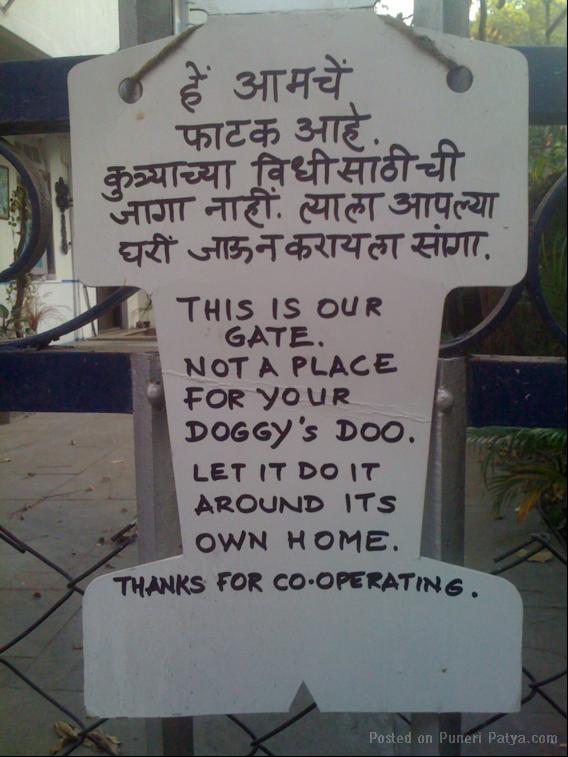 हें आमचें
फाटक आहे.
कुत्र्याच्या विधीसाठीची
जागा नाहीं. त्याला आपल्या
घरीं जाऊन करायला सांगा.
THIS IS OUR
GATE.
NOT A PLACE
FOR YOUR
DOGGY'S DOO.
LET IT DO IT
AROUND ITS
OWN HOME.
THANKS FOR CO-OPERATING.
Posted on Puneri Patya.com